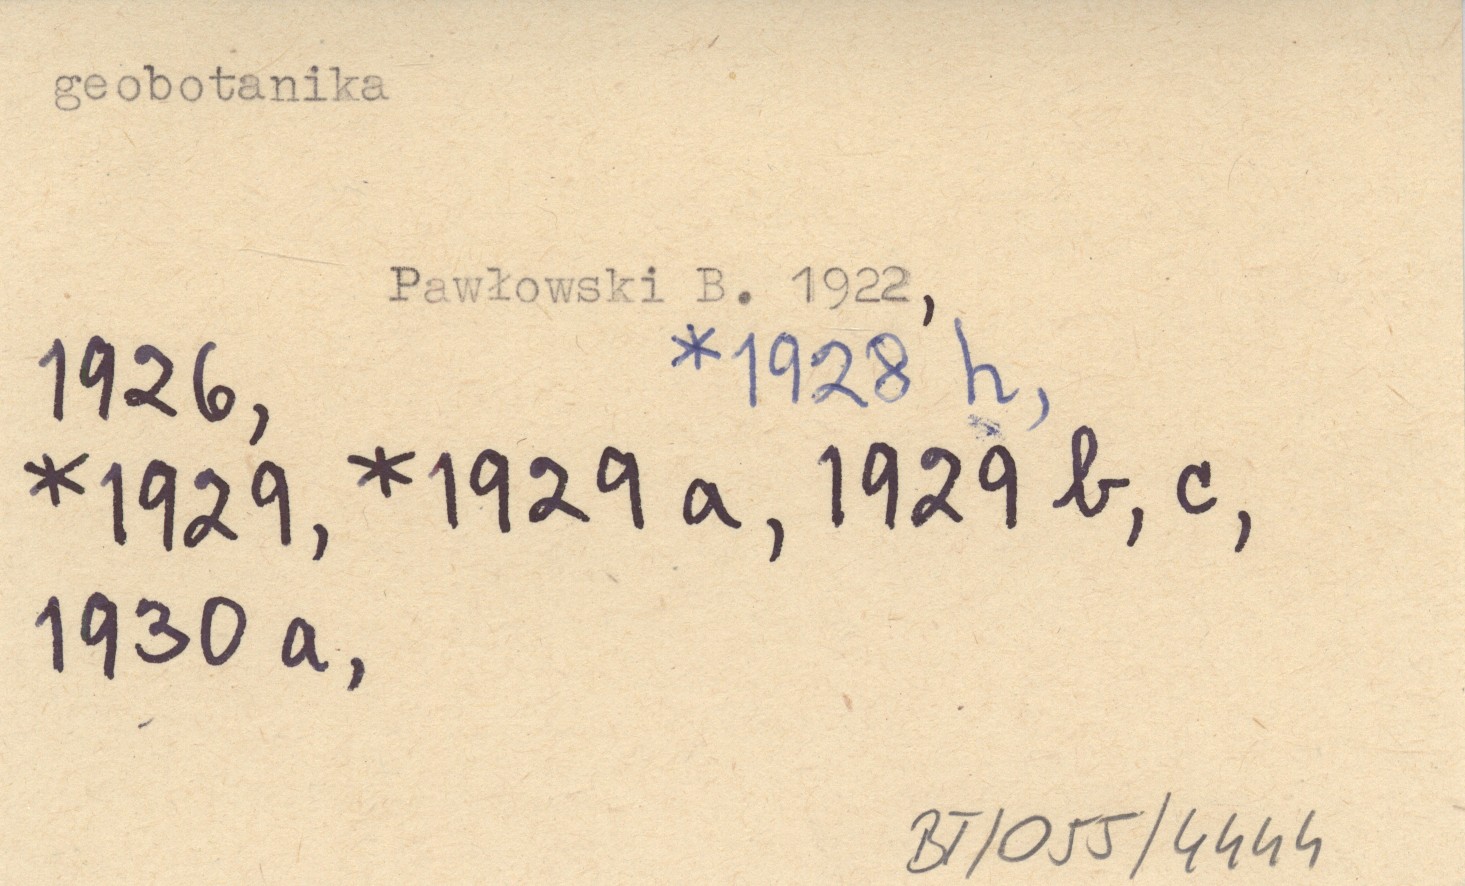 geobotanika
Pawłowski B. 1922,
1926, *1928 h,
*1929, *1929 a, 1929 b, c,
1930 a,
BT/055/4444